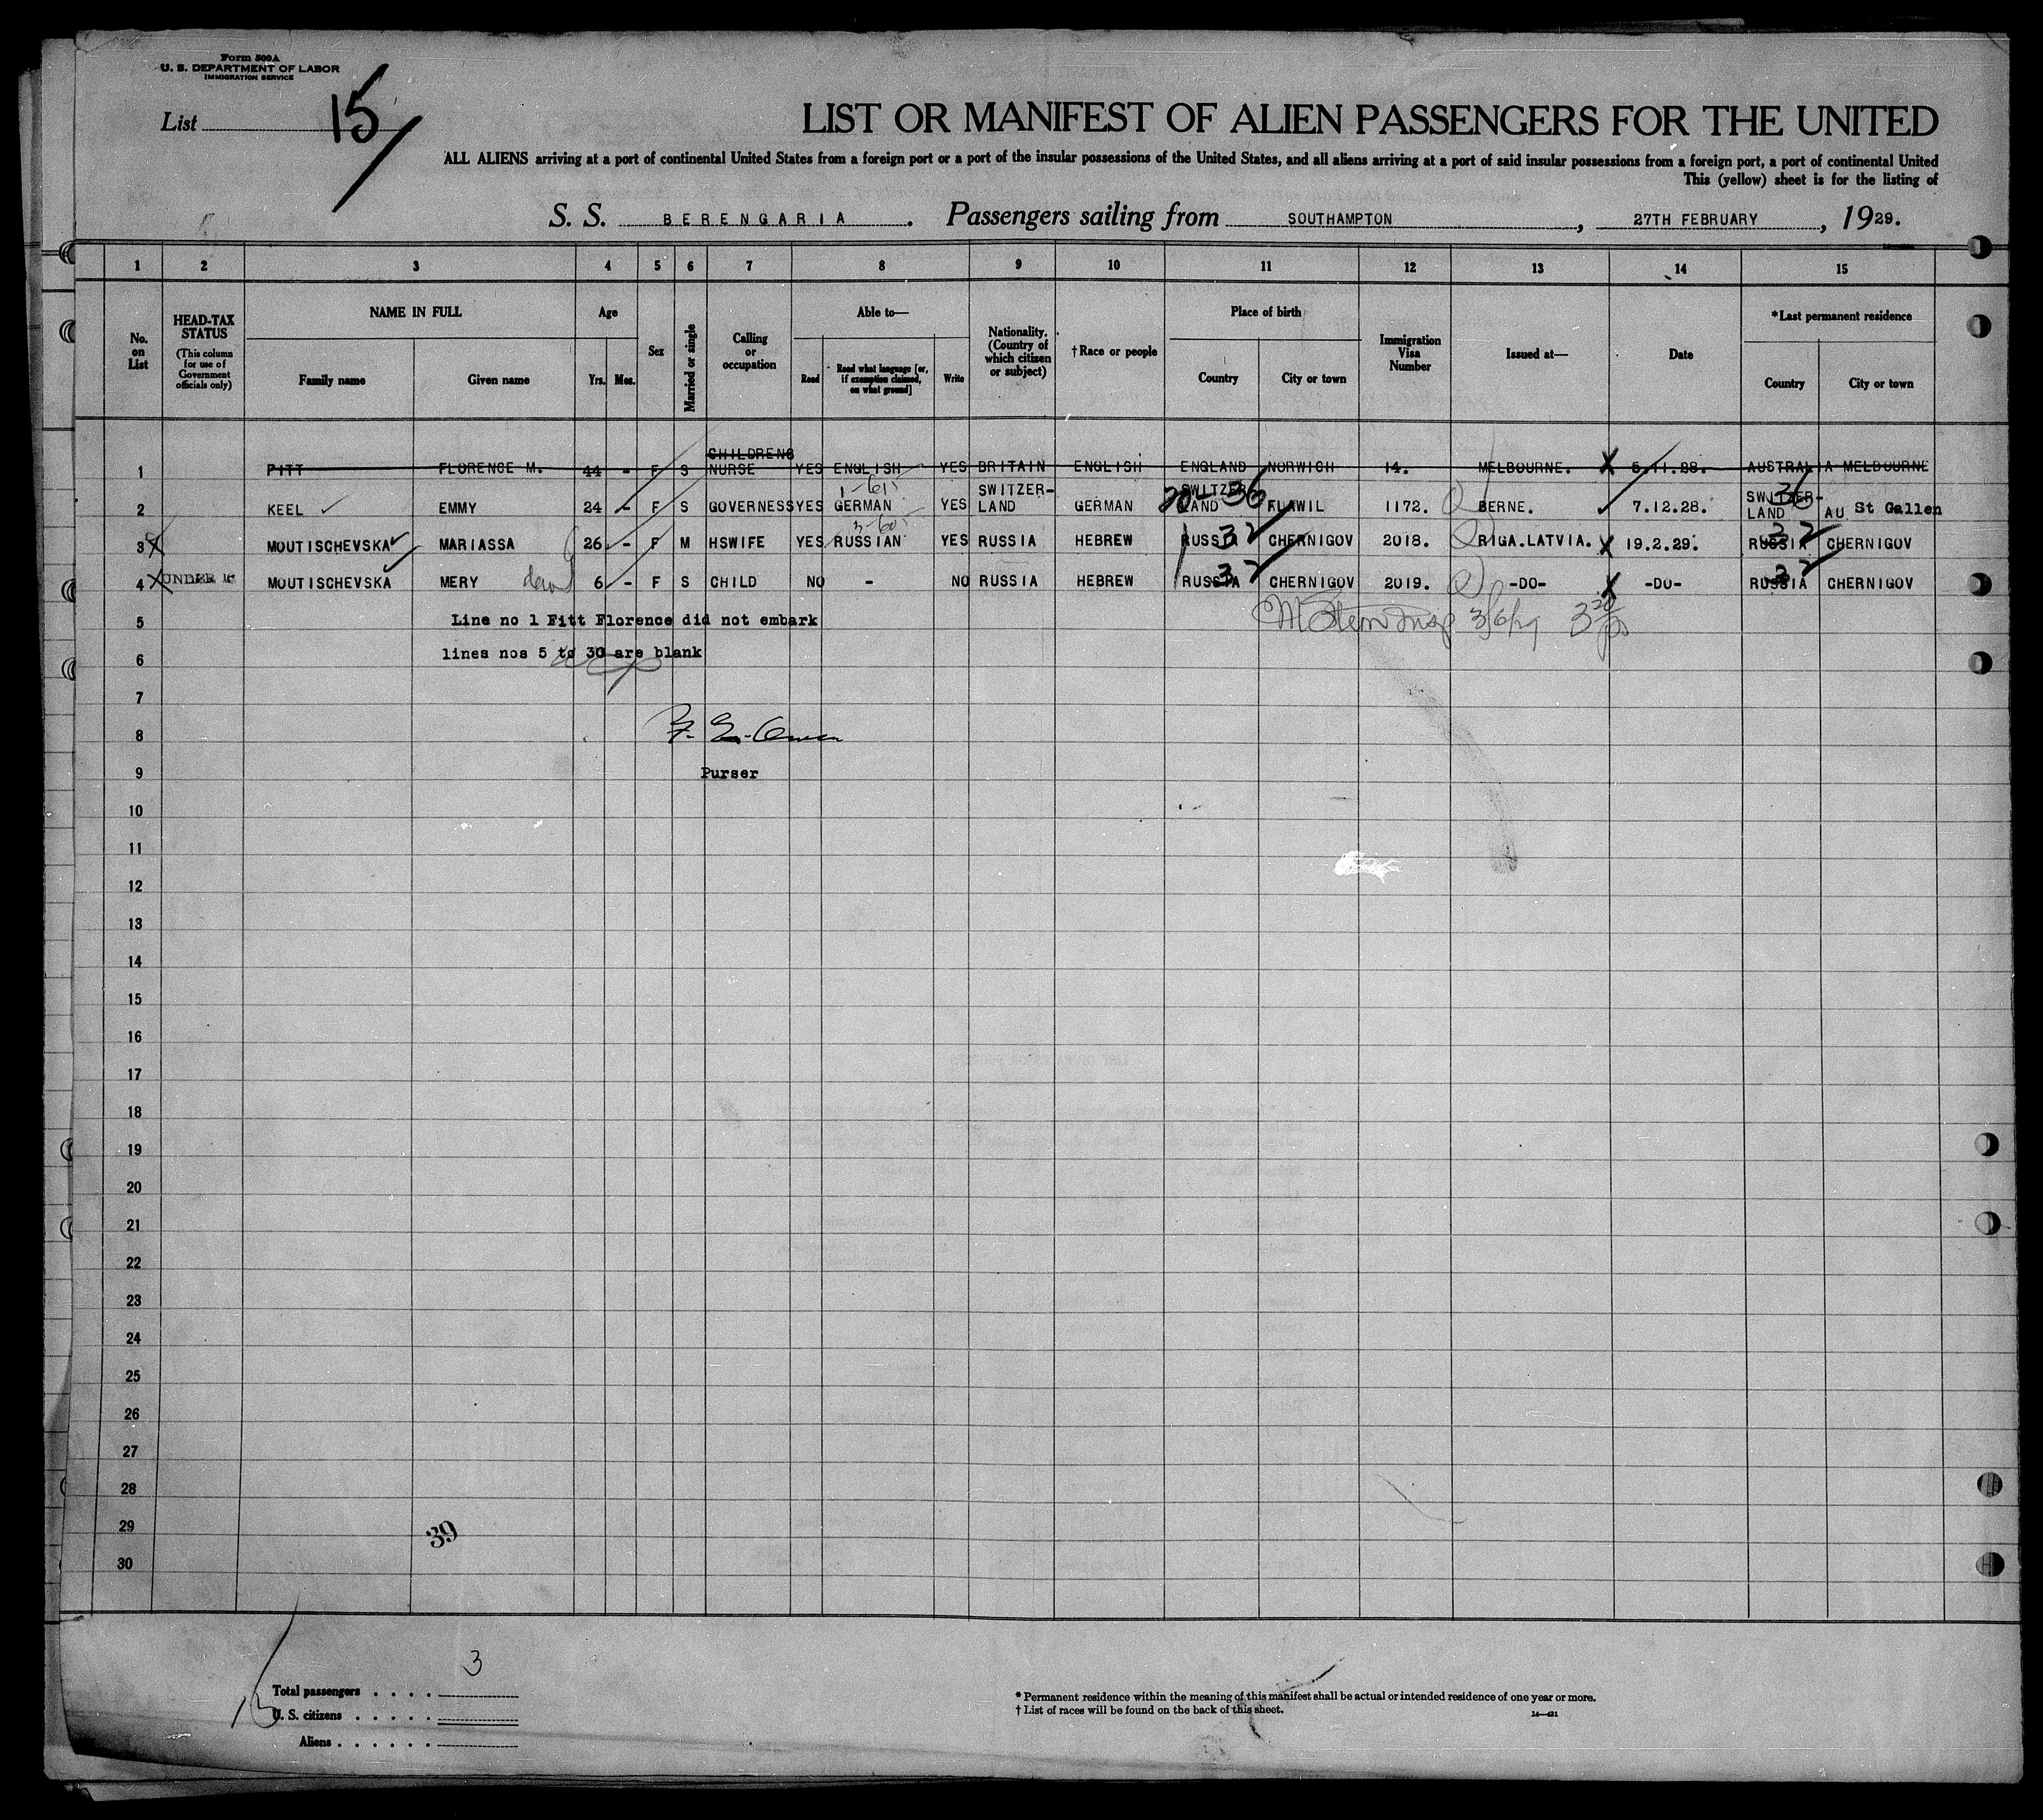 Form 500A
U. S. DEPARTMENT OF LABOR
IMMIGRATION SERVICE
List 15
LIST OR MANIFEST OF ALIEN PASSENGERS FOR THE UNITED
ALL ALIENS arriving at a port of continental United States from a foreign port or a port of the insular possessions of the United States, and all aliens arriving at a port of said insular possessions from a foreign port, a port of continental United
This (yellow) sheet is for the listing of
S. S. BERENGARIA. Passengers sailing from SOUTHAMPTON, 27TH FEBRUARY, 1929.
1 2 3 4 5 6 7 8 9 10 11 12 13 14 15
No. on List
HEAD-TAX STATUS (This column for use of Government officials only)
NAME IN FULL
Family name Given name
Age
Yrs. Mos.
Sex
Married or single
Calling or occupation
Able to—
Read Read what language [or, if exemption claimed, on what ground] Write
Nationality. (Country of which citizen or subject)
†Race or people
Place of birth
Country City or town
Immigration Visa Number
Issued at—
Date
*Last permanent residence
Country City or town
1 PITT FLORENCE M. 44 - F S CHILDRENS NURSE YES ENGLISH YES BRITAIN ENGLISH ENGLAND NORWICH 14. MELBOURNE. X 5.11.28. AUSTRALIA MELBOURNE
2 KEEL EMMY 24 - F S GOVERNESS YES GERMAN YES SWITZER-LAND GERMAN SWITZER-LAND FLAWIL 1172. BERNE. 7.12.28. SWITZER-LAND AU St Gallen
3 MOUTISCHEVSKA MARIASSA 26 - F M HSWIFE YES RUSSIAN YES RUSSIA HEBREW RUSSIA 32 CHERNIGOV 2018. RIGA.LATVIA. X 19.2.29. RUSSIA 32 CHERNIGOV
4 UNDER 16 MOUTISCHEVSKA MERY 6 - F S CHILD NO - NO RUSSIA HEBREW RUSSIA 32 CHERNIGOV 2019. -DO- X -DO- RUSSIA 32 CHERNIGOV
5 Line no 1 Fitt Florence did not embark
6 lines nos 5 to 30 are blank
7
8
9 Purser
10
11
12
13
14
15
16
17
18
19
20
21
22
23
24
25
26
27
28
29
30
39
Total passengers . . . . 3
U. S. citizens . . . . .
Aliens . . . . . .
* Permanent residence within the meaning of this manifest shall be actual or intended residence of one year or more.
† List of races will be found on the back of this sheet.
14—431